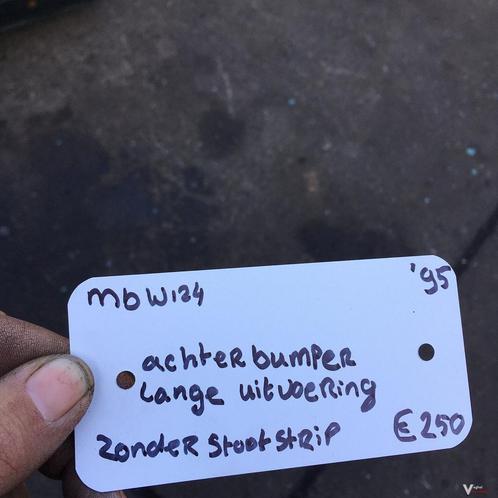 MB W124 '95
achterbumper
Lange uitvoering
zonder stootstrip €250